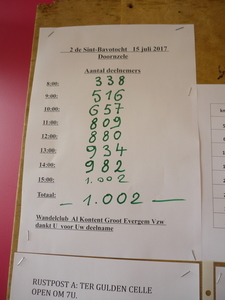 2 de Sint-Bavotocht 15 juli 2017
Doornzele
Aantal deelnemers
8:00: 338
9:00: 516
10:00: 657
11:00: 809
12:00: 880
13:00: 934
14:00: 982
15:00: 1.002
Totaal: — 1.002 —
Wandelclub Al Kontent Groot Evergem Vzw
dankt U voor Uw deelname
RUSTPOST A: TER GULDEN CELLE
OPEN OM 7U.